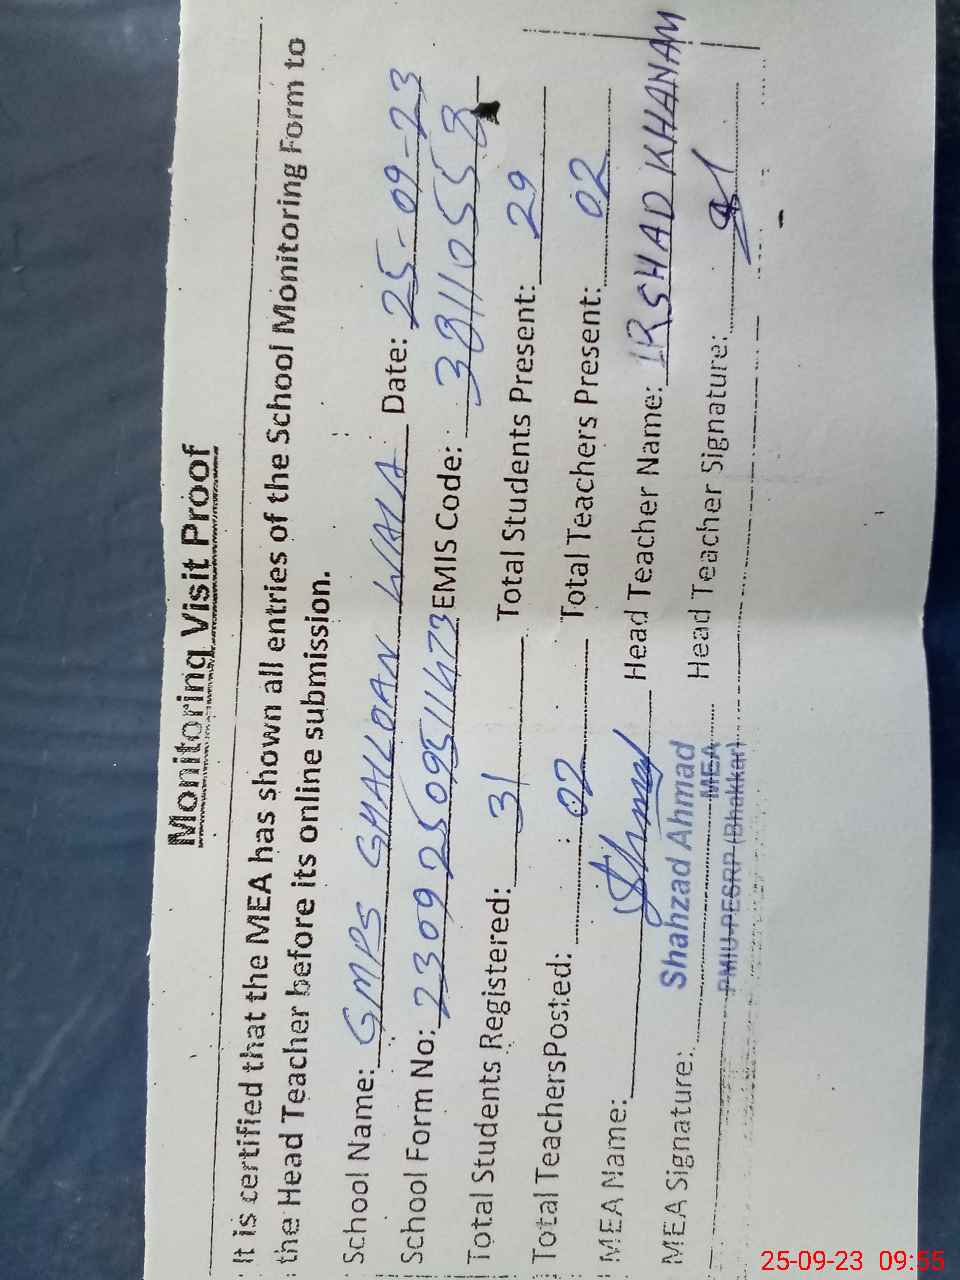 Monitoring Visit Proof
It is certified that the MEA has shown all entries of the School Monitoring Form to
the Head Teacher before its online submission.
School Name: GMPS GHALLOAN WALA Date: 25-09-23
School Form No: 23092509511473 EMIS Code: 38110558
Total Students Registered: 31 Total Students Present: 29
Total TeachersPosted: 02 Total Teachers Present: 02
MEA Name: Head Teacher Name: IRSHAD KHANAM
MEA Signature: Shahzad Ahmad Head Teacher Signature:
MEA
PMIU-PESRP (Bhakkar)
25-09-23 09:55